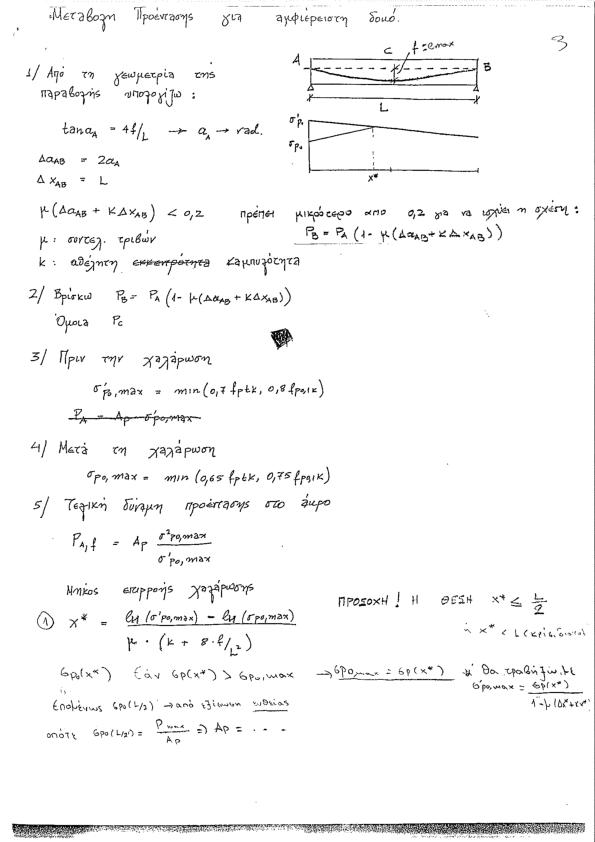 Μεταβολη Προέντασης για αμφιέρειστη δοκό.
3
A C f = emax B
L
1/ Από τη γεωμετρία της
παραβολής υπολογίζω :
tanαA = 4f/L → αA → rad.
σ'po
σpo
x*
ΔαAB = 2αA
ΔxAB = L
μ(ΔαAB + KΔxAB) < 0,2 πρέπει μικρότερο απο 0,2 για να ισχύει η σχέση :
PB = PA (1- μ(ΔαAB + KΔxAB))
μ : συντελ. τριβών
k : αθέλητη εκκεντρότητα καμπυλότητα
2/ Βρίσκω PB = PA (1- μ(ΔαAB + KΔxAB))
Όμοια PC
3/ Πριν την χαλάρωση
σ'po,max = min(0,7 fptk, 0,8 fp0,1k)
PA = Ap σ'po,max
4/ Μετά τη χαλάρωση
σpo,max = min (0,65 fptk, 0,75 fp0,1k)
5/ Τελική δύναμη προέντασης στο άκρο
PA,f = Ap σ²po,max / σ'po,max
Μηκος επιρροής χαλάρωσης
① x* = ln(σ'po,max) - ln(σpo,max) / μ · (k + 8·f/L²)
ΠΡΟΣΟΧΗ ! Η ΘΕΣΗ x* ≤ L/2
ή x* < L
σpo(x*) Εάν σp(x*) > σpo,max → σpo,max = σp(x*) * θα τραβήξω με
σ'po,max = σp(x*) / 1-μ(Δα*+kx*)
Επομένως σpo(L/2) → από εξίσωση ευθείας
οπότε σpo(L/2) = Pmax / Ap ⇒ Ap = . . .